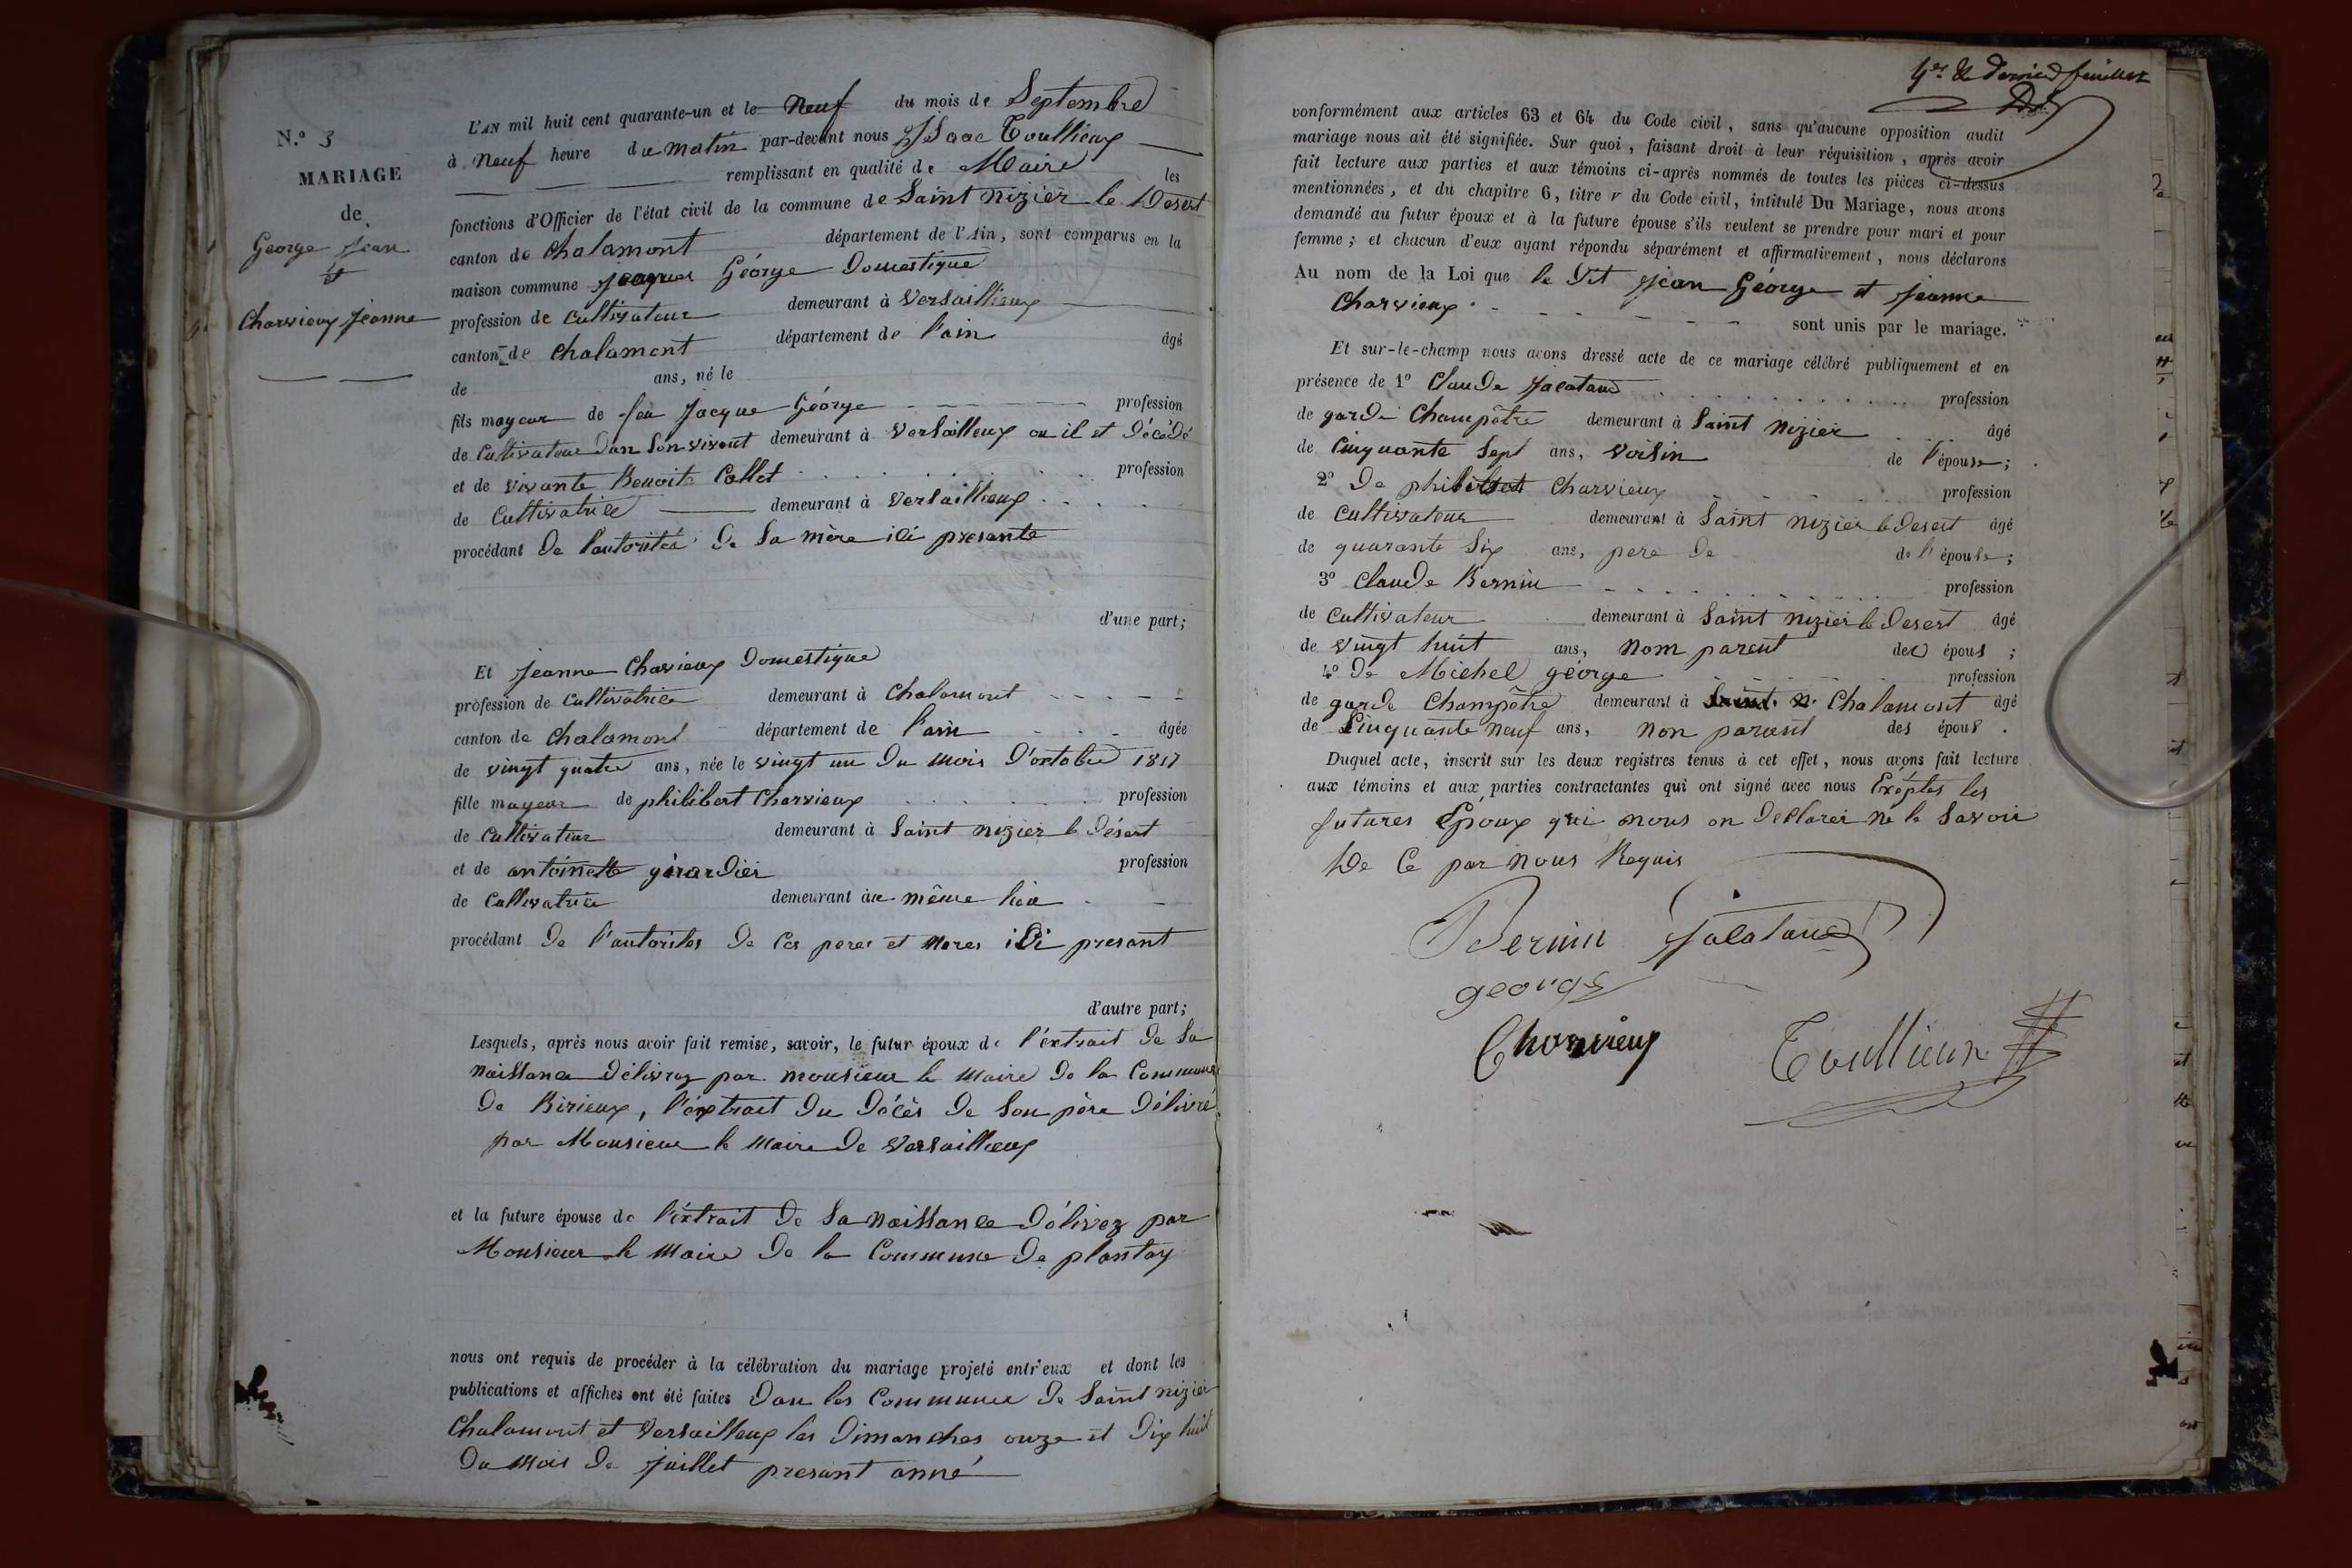 N.° 3
MARIAGE
de
George Jean
et
Charvieux Jeanne
L'AN mil huit cent quarante-un et le neuf du mois de Septembre
à neuf heure du matin par-devant nous Isaac Toullieux
remplissant en qualité de Maire les
fonctions d'Officier de l'état civil de la commune de Saint nizier le Desert
canton de chalamont département de l'Ain, sont comparus en la
maison commune George Domestique
profession de cultivateur demeurant à Versaillieux
canton de chalamont département de l'ain âgé
de ans, né le
fils mayeur de feu Jacque George profession
de Cultivateur Dan Son vivent demeurant à Versailleux ou il et Décédé
et de vivante Benoite Collet profession
de Cultivatrice demeurant à Versaillieux
procédant De l'autorités De Sa mère ici presante
d'une part;
Et Jeanne Charvieux Domestique
profession de cultivatrice demeurant à Chalamont
canton de chalamont département de l'ain âgée
de vingt quatre ans, née le vingt un Du mois D'octobre 1817
fille mayeur de philibert Charvieux profession
de Cultivateur demeurant à Saint nizier le Désert
et de antoinette girardier profession
de Cultivatrice demeurant au même lieu
procédant De l'autorites De Ces peres et meres ici presant
d'autre part;
Lesquels, après nous avoir fait remise, savoir, le futur époux de l'extrait De Sa
naissance Délivrez par monsieur le Maire De la Commune
De Birieux, l'extrait Du Décès De Son père Délivré
par Monsieur le Maire De Versaillieux
et la future épouse de l'extrait De Sa naissance Délivez par
Monsieur le Maire De la Commune De plantay
nous ont requis de procéder à la célébration du mariage projeté entr'eux et dont les
publications et affiches ont été faites Dan les Commune De Saint nizier
Chalamont et Versailleux les Dimanches onze et Dix huit
Du Mois De Juillet presant anné
4er et Dernier feuillet
conformément aux articles 63 et 64 du Code civil, sans qu'aucune opposition audit
mariage nous ait été signifiée. Sur quoi, faisant droit à leur réquisition, après avoir
fait lecture aux parties et aux témoins ci-après nommés de toutes les pièces ci-dessus
mentionnées, et du chapitre 6, titre v du Code civil, intitulé Du Mariage, nous avons
demandé au futur époux et à la future épouse s'ils veulent se prendre pour mari et pour
femme; et chacun d'eux ayant répondu séparément et affirmativement, nous déclarons
Au nom de la Loi que le Dit Jean George et Jeanne
Charvieux
sont unis par le mariage.
Et sur-le-champ nous avons dressé acte de ce mariage célébré publiquement et en
présence de 1° Claude Jacataud profession
de garde Champêtre demeurant à Saint Nizier âgé
de Cinquante Sept ans, voisin de l'épouse;
2° De philibert Charvieux profession
de cultivateur demeurant à Saint nizier le Desert âgé
de quarante Six ans, pere De de l'épouse;
3° Claude Bernin profession
de cultivateur demeurant à Saint nizier le Desert âgé
de vingt huit ans, nom parent des épous;
4° De Michel George profession
de garde Champêtre demeurant à Saint. N. Chalamont âgé
de Cinquante neuf ans, non parent des épous.
Duquel acte, inscrit sur les deux registres tenus à cet effet, nous avons fait lecture
aux témoins et aux parties contractantes qui ont signé avec nous Exéptes les
futures Époux qui nous on Déclarer ne le Savoir
De Ce par nous Requis
Bernin Jacataud
george
Charvieux Toullieux